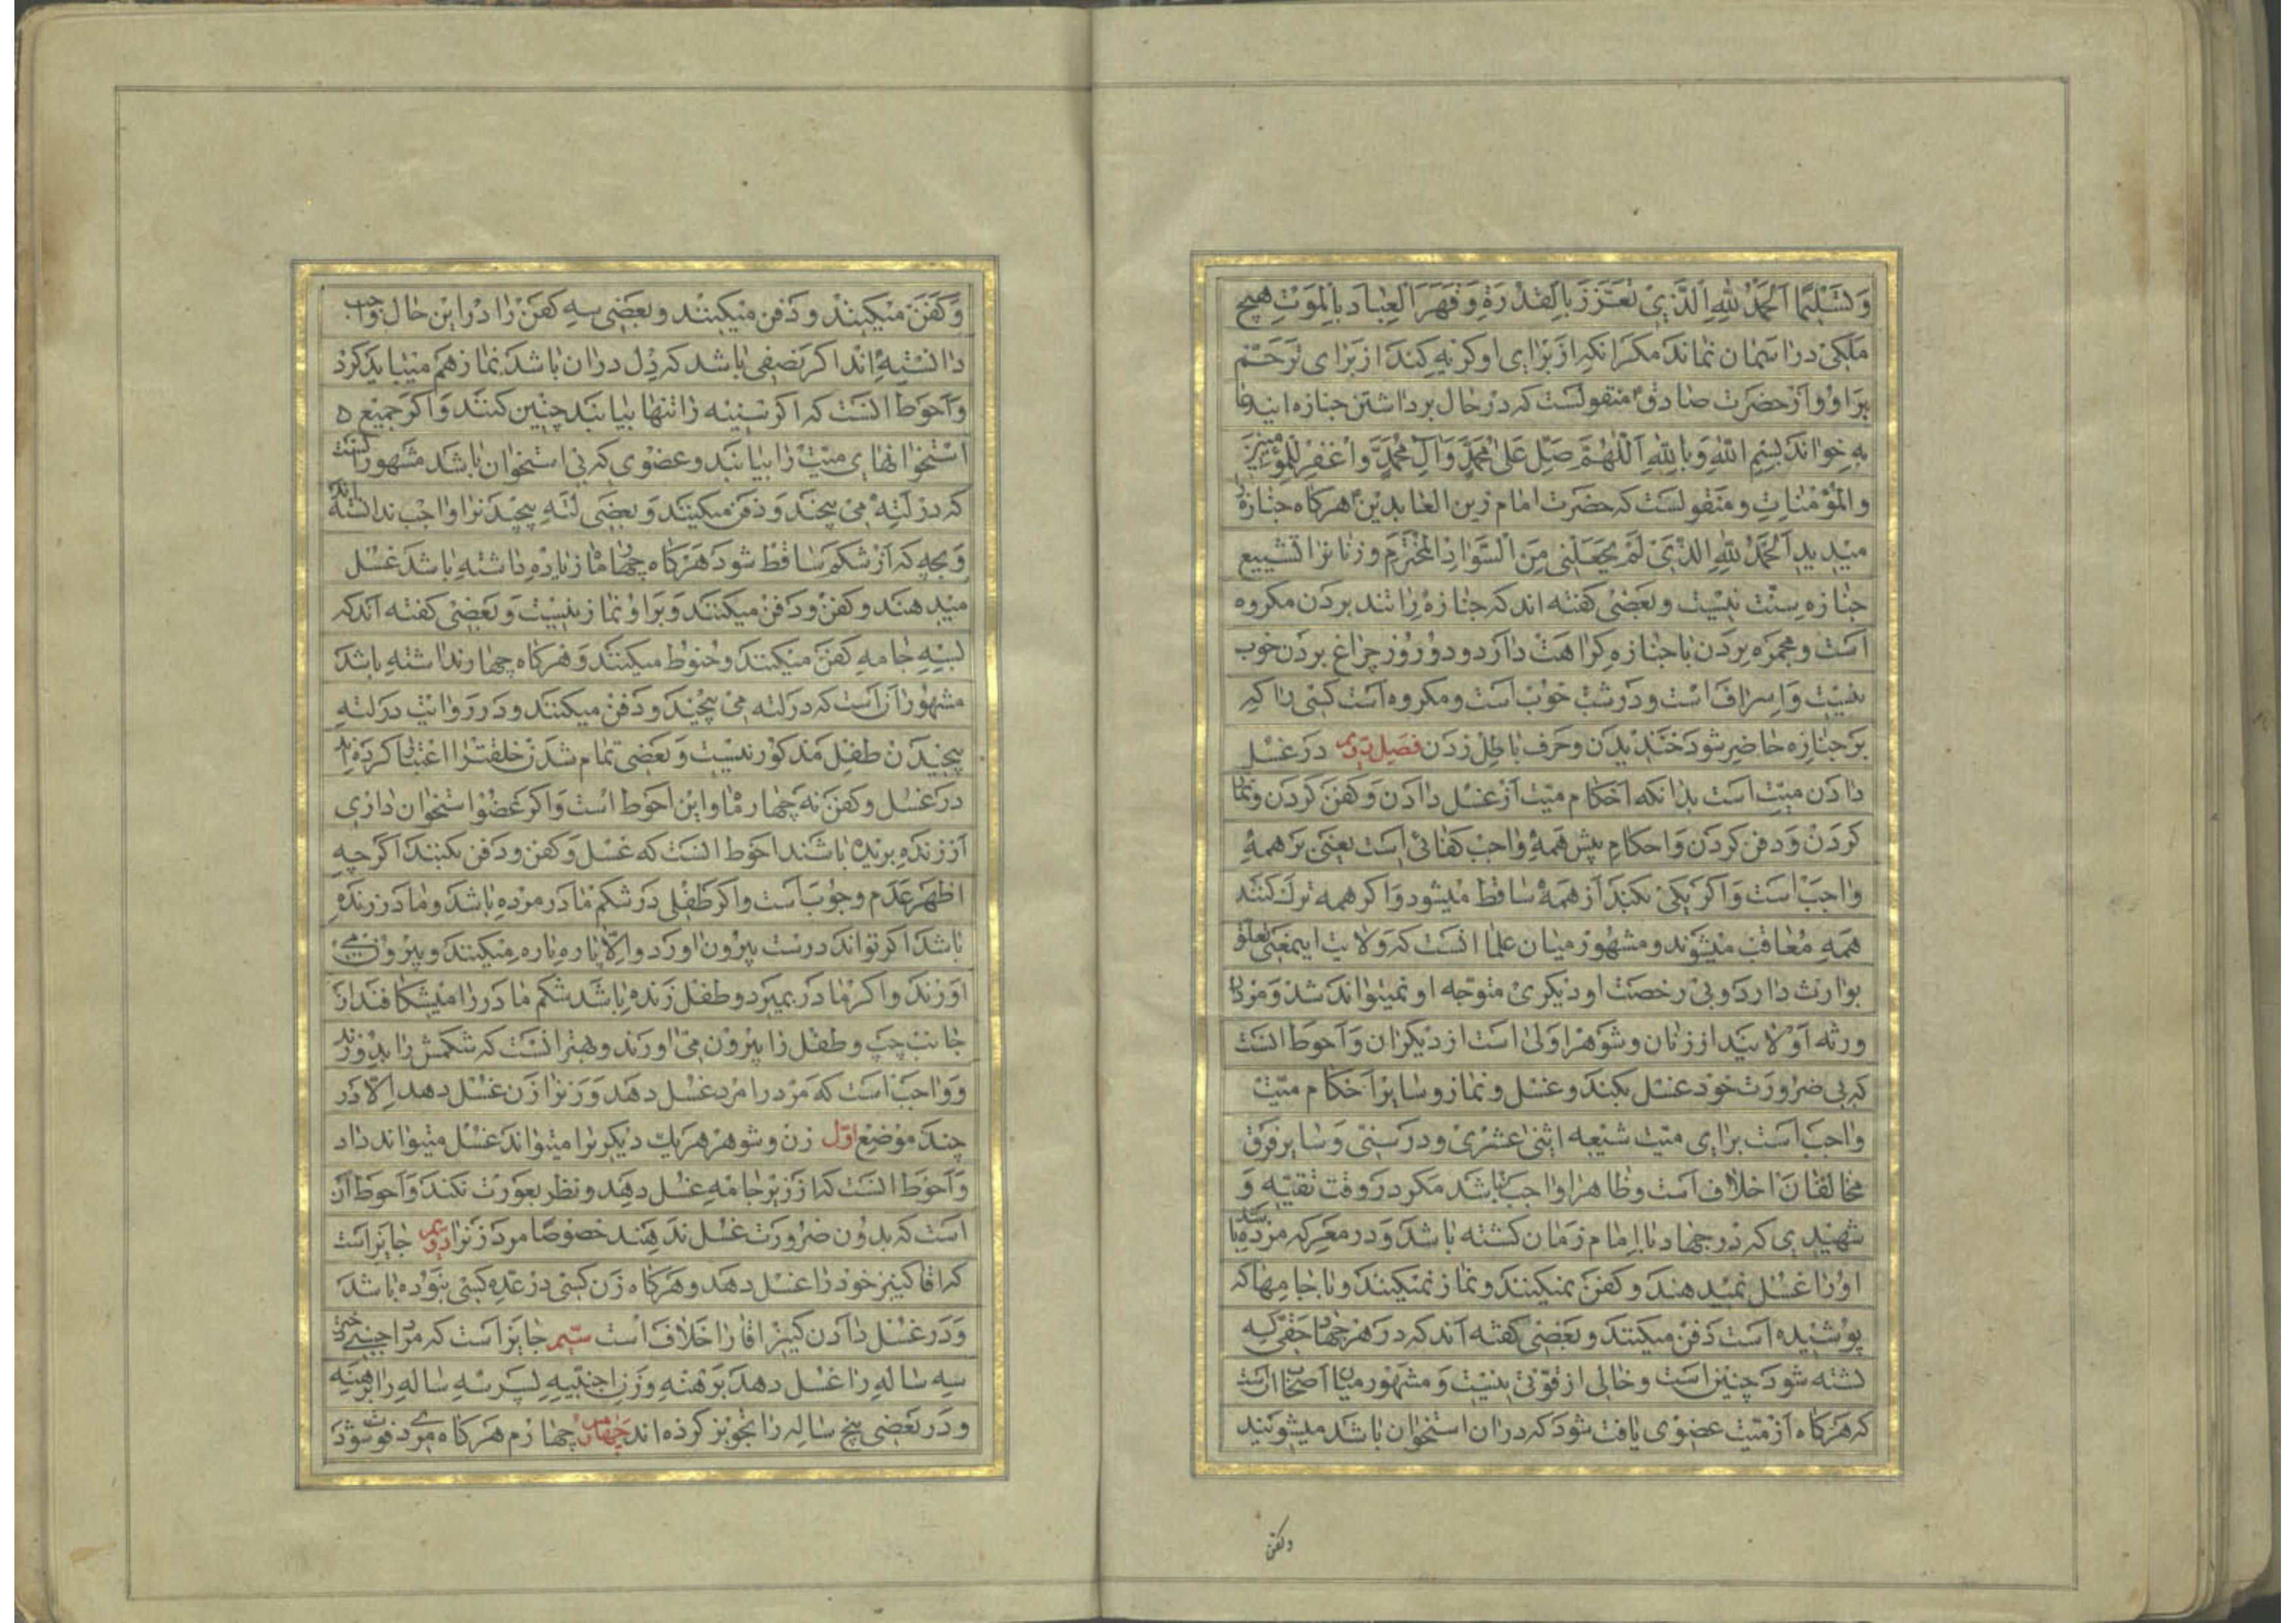 وَتَسْلِيمًا اَلْحَمْدُ لِلّٰهِ الَّذِي تَعَزَّزَ بِالْقُدْرَةِ وَقَهَرَ الْعِبَادَ بِالْمَوْتِ هیچ
ملکی در اسمان نماند مکر انکه از برای او کریه کند از برای ترحم
بر او و از حضرت صادق ع منقولست که در حال برداشتن جنازه این دعا
به خواند بسم الله و بالله اللهم صل علی محمد و آل محمد و اغفر للمؤمنین
والمؤمنات و منقولست که حضرت امام زین العابدین ع هرکاه جنازه را
میدید الحمد لله الذی لم یجعلنی من السواد المخترم و زنانرا تشییع
جنازه سنت نیست و بعضی کفته اند که جنازه را تند بردن مکروه
است و مجمره بردن با جنازه کراهت دارد و در روز چراغ بردن خوب
نیست و اسراف است و در شب خوب است و مکروه است کسی را که
بر جنازه حاضر شود خندیدن و حرف باطل زدن فصل دویم در غسل
دادن میت است بدانکه احکام میت از غسل دادن و کفن کردن و نماز
کردن و دفن کردن و احکام پیش همه واجب کفائی است یعنی بر همه
واجب است و اکر یکی بکند از همه ساقط میشود و اکر همه ترک کنند
همه معاقب میشوند و مشهور میان علما انست که ولایت اینمعنی تعلق
بوارث دارد و بی رخصت او دیکری متوجه او نمیتواند شد و مردان
ورثه اولایند از زنان و شوهر اولی است از دیکران و احوط انست
که بی ضرورت خود غسل بکند و غسل و نماز و سایر احکام میت
واجب است برای میت شیعه اثنی عشری و در سنی و سایر فرق
مخالفان اختلاف است و ظاهرا واجب نباشد مکر در وقت تقیه و
شهیدی که در جهاد با امام زمان کشته باشد و در معرکه مرده باشد
اورا غسل نمیدهند و کفن نمیکنند و نماز نمیکنند و با جامهاکه
پوشیده است دفن میکنند و بعضی کفته اند که در هر جهاد حقی که
کشته شود چنین است و خالی از قوتی نیست و مشهور میان اصحاب انست
که هرکاه از میت عضوی یافت شود که دران استخوان باشد میشویند
وکفن
و کفن میکنند و دفن میکنند و بعضی سه کفن را در این حال واجب
دانسته اند اکر نصفی باشد که دل دران باشد نماز هم میباید کرد
و احوط انست که اکر سینه را تنها بیابند چنین کنند و اکر جمیع
استخوانهای میت را بیابند و عضوی که بی استخوان باشد مشهور انست
که در لته می پیچند و دفن میکنند و بعضی لته پیچیدنرا واجب ندانسته اند
و بچه که از شکم ساقط شود هرکاه چهار ماه زیاده داشته باشد غسل
میدهند و کفن و دفن میکنند و بر او نماز نیست و بعضی کفته اند که
بسه جامه کفن میکنند و حنوط میکنند و هرکاه چهار نداشته باشد
مشهور آن است که در لته می پیچند و دفن میکنند و در روایت در لته
پیچیدن طفل مذکور نیست و بعضی تمام شدن خلقترا اعتبار کرده اند
در غسل و کفن نه چهار ماه و این احوط است و اکر عضو استخوان داری
از زنده بریده باشند احوط انست که غسل و کفن و دفن بکنند اکر چه
اظهر عدم وجوب است و اکر طفلی در شکم مادر مرده باشد و مادر زنده
باشد اکر تواند درست بیرون اورد و الا پاره پاره میکنند و بیرون می
اورند و اکر مادر بمیرد و طفل زنده باشد شکم مادر را میشکافند از
جانب چپ و طفل را بیرون می اورند و بهتر انست که شکمش را بدوزند
و واجب است که مرد را مرد غسل دهد و زنرا زن غسل دهد الا در
چند موضع اول زن و شوهر هر یک دیکریرا میتواند غسل میتواند داد
و احوط انست که از زیر جامه غسل دهد و نظر بعورت نکند و احوط آن
است که بدون ضرورت غسل ندهند خصوصا مرد زنرا دویم جایز است
که اقا کنیز خود را غسل دهد و هرکاه زن کسی در عده کسی نبوده باشد
و در غسل دادن کنیز اقا را خلاف است سیم جایز است که مرد اجنبی دختر
سه ساله را غسل دهد برهنه و زن اجنبیه پسر سه ساله را برهنه
و در بعضی پنج ساله را تجویز کرده اند چهارم چهارم هرکاه مردی فوت شود